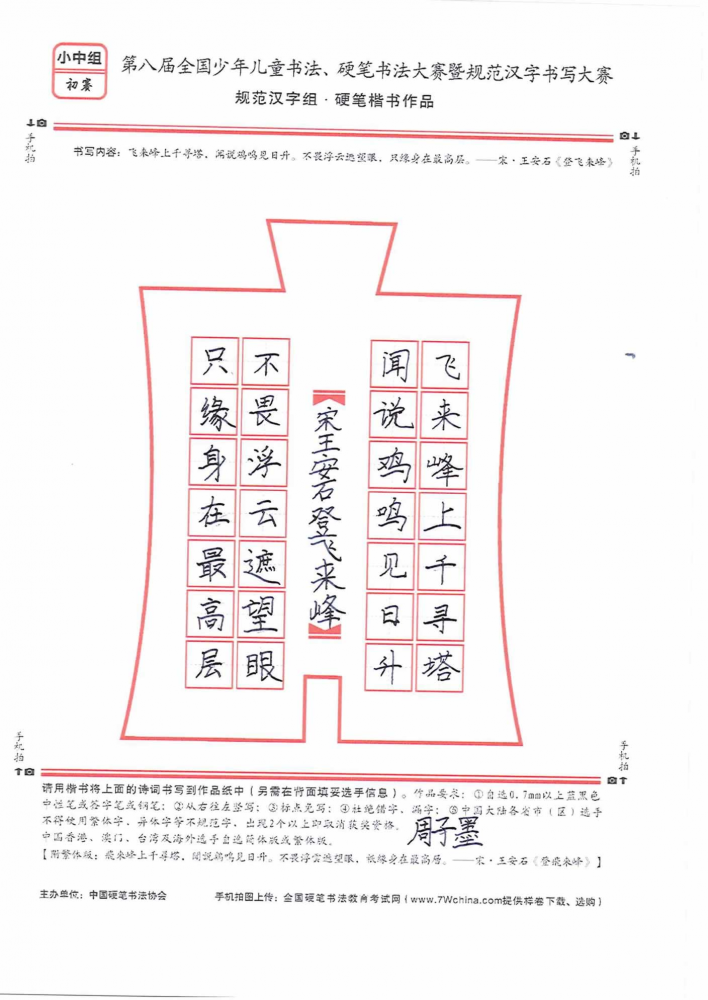 小中组
初赛
第八届全国少年儿童书法、硬笔书法大赛暨规范汉字书写大赛
规范汉字组·硬笔楷书作品
手机拍
手机拍
书写内容：飞来峰上千寻塔，闻说鸡鸣见日升。不畏浮云遮望眼，只缘身在最高层。——宋·王安石《登飞来峰》
飞来峰上千寻塔
闻说鸡鸣见日升
宋王安石登飞来峰
不畏浮云遮望眼
只缘身在最高层
手机拍
手机拍
请用楷书将上面的诗词书写到作品纸中（另需在背面填妥选手信息）。作品要求：①自选0.7mm以上蓝黑色
中性笔或签字笔或钢笔；②从右往左竖写；③标点免写；④杜绝错字、漏字；⑤中国大陆各省市（区）选手
不得使用繁体字、异体字等不规范字，出现2个以上即取消获奖资格。
中国香港、澳门、台湾及海外选手自选简体版或繁体版。
周子墨
【附繁体版：飛來峰上千尋塔，聞說鷄鳴見日昇。不畏浮雲遮望眼，祇緣身在最高層。——宋·王安石《登飛來峰》】
主办单位：中国硬笔书法协会
手机拍图上传：全国硬笔书法教育考试网（www.7Wchina.com提供样卷下载、选购）